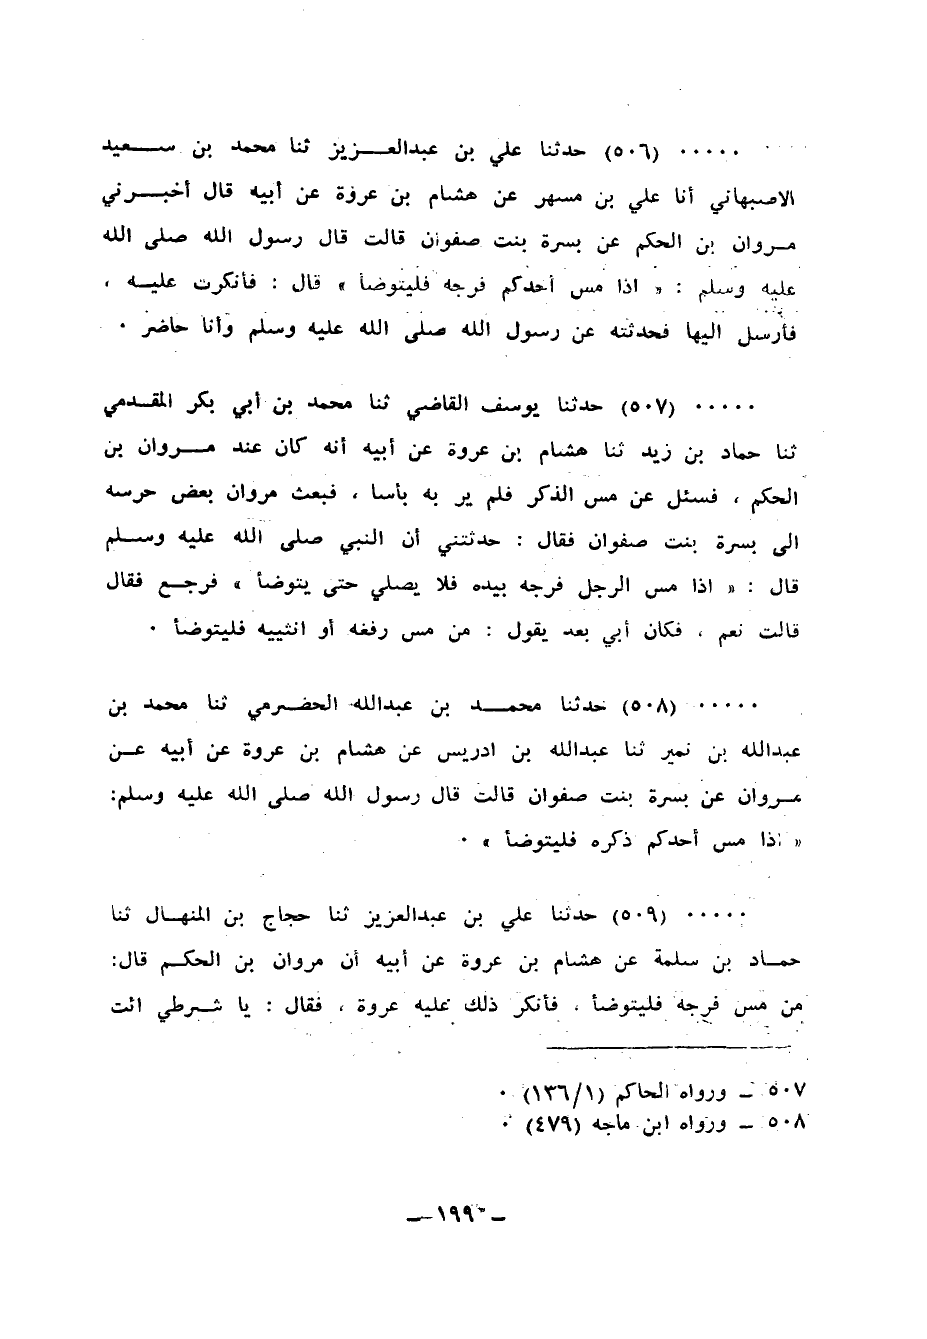 ..... (٥٠٦) حدثنا علي بن عبدالعزيز ثنا محمد بن سعيد
الاصبهاني أنا علي بن مسهر عن هشام بن عروة عن أبيه قال أخبرني
مروان بن الحكم عن بسرة بنت صفوان قالت قال رسول الله صلى الله
عليه وسلم : « اذا مس أحدكم فرجه فليتوضأ » قال : فأنكرت عليه ،
فأرسل اليها فحدثته عن رسول الله صلى الله عليه وسلم وأنا حاضر ٠
..... (٥٠٧) حدثنا يوسف القاضي ثنا محمد بن أبي بكر المقدمي
ثنا حماد بن زيد ثنا هشام بن عروة عن أبيه أنه كان عند مروان بن
الحكم ، فسئل عن مس الذكر فلم ير به بأسا ، فبعث مروان بعض حرسه
الى بسرة بنت صفوان فقال : حدثتني أن النبي صلى الله عليه وسلم
قال : « اذا مس الرجل فرجه بيده فلا يصلي حتى يتوضأ » فرجع فقال
قالت نعم ، فكان أبي بعد يقول : من مس رفغه أو انثييه فليتوضأ ٠
..... (٥٠٨) حدثنا محمد بن عبدالله الحضرمي ثنا محمد بن
عبدالله بن نمير ثنا عبدالله بن ادريس عن هشام بن عروة عن أبيه عن
مروان عن بسرة بنت صفوان قالت قال رسول الله صلى الله عليه وسلم:
« اذا مس أحدكم ذكره فليتوضأ » ٠
..... (٥٠٩) حدثنا علي بن عبدالعزيز ثنا حجاج بن المنهال ثنا
حماد بن سلمة عن هشام بن عروة عن أبيه أن مروان بن الحكم قال:
من مس فرجه فليتوضأ ، فأنكر ذلك عليه عروة ، فقال : يا شرطي ائت
٥٠٧ ــ ورواه الحاكم (١٣٦/١) ٠
٥٠٨ ــ ورواه ابن ماجه (٤٧٩) ٠
ــ ١٩٩ ــ